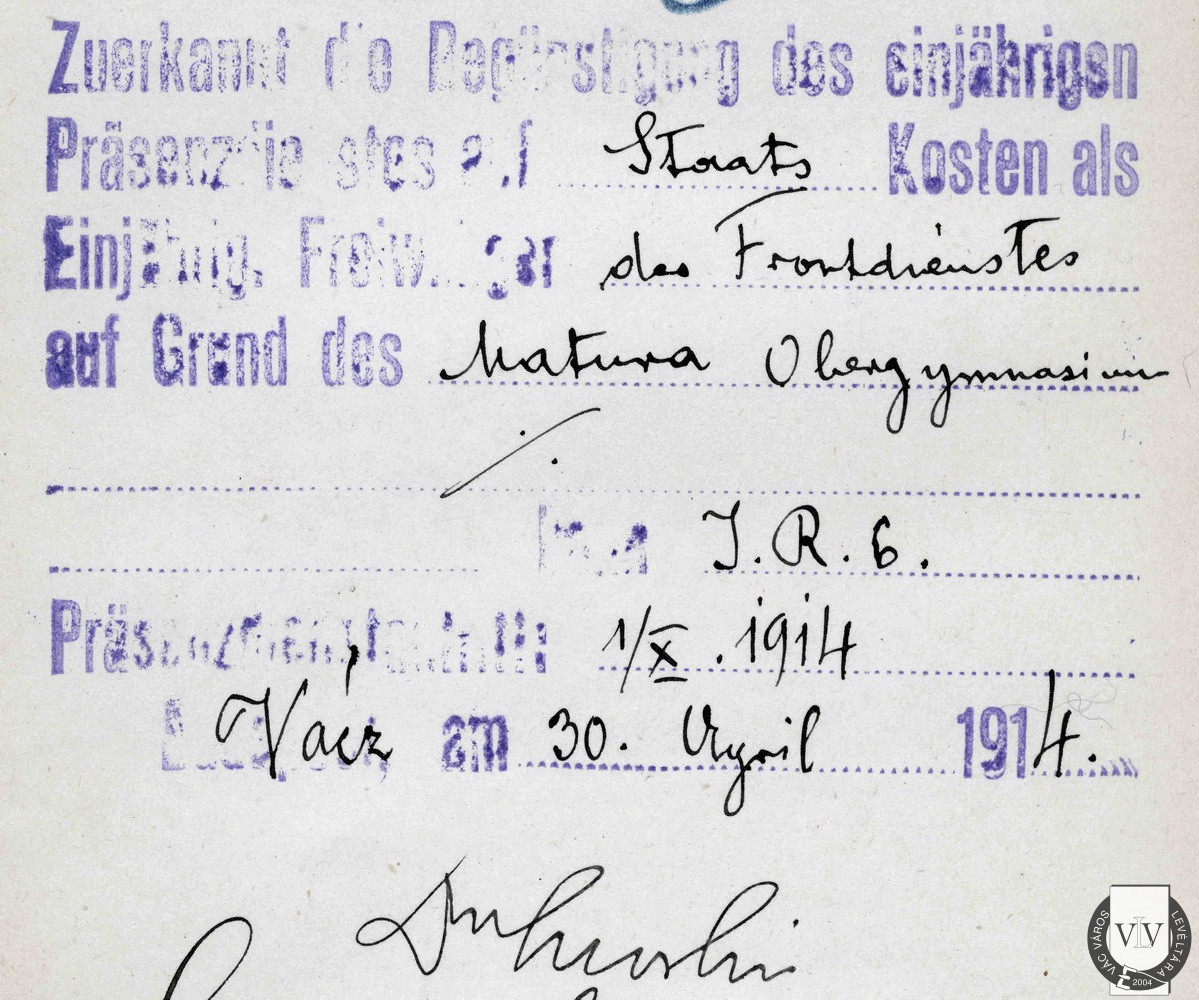 Zuerkannt die Begünstigung des einjährigen
Präsenzdienstes auf Staats Kosten als
Einjährig. Freiwilliger des Frontdienstes
auf Grund des Matura Obergymnasium
I. R. 6.
Präsenzdienstantritt: 1/X. 1914
Vácz am 30. April 1914.
VÁC VÁROS LEVÉLTÁRA
VLV
2004